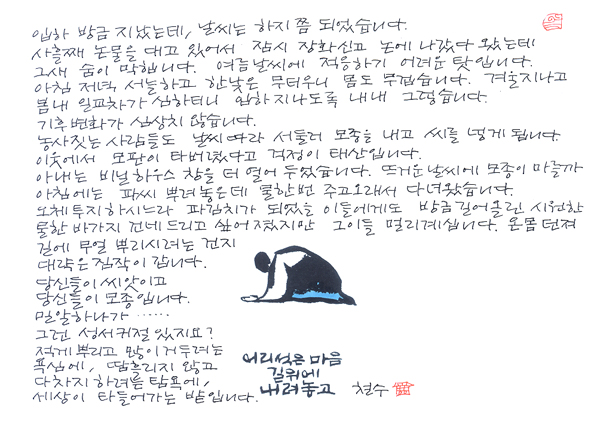 입하 방금 지났는데, 날씨는 하지쯤 되었습니다.
사흘째 논물을 대고 있어서 잠시 장화신고 논에 나갔다 왔는데
그새 숨이 막힙니다. 여름날씨에 적응하기 어려운 탓입니다.
아침 저녁 서늘하고 한낮은 무더우니 몸도 무겁습니다. 겨울지나고
봄내 일교차가 심하더니 입하지나도록 내내 그렇습니다.
기후변화가 심상치 않습니다.
농사짓는 사람들도 날씨따라 서둘러 모종을 내고 씨를 넣게 됩니다.
이웃에서 모판이 타버렸다고 걱정이 태산입니다.
아내는 비닐하우스 창을 더 열어 두었습니다. 뜨거운날씨에 모종이 마를까
아침에는 파씨 뿌려놓은데 물한번 주고오라해서 다녀왔습니다.
오체투지하시느라 파김치가 되었을 이들에게도 방금길어올린 시원한
물한 바가지 건네드리고 싶어졌지만 그이들 멀리계십니다. 온몸 던져
길에 무얼 뿌리시려는 건지
대략은 짐작이 갑니다.
당신들이 씨앗이고
당신들이 모종입니다.
밀알하나가 ……
그런 성서귀절 있지요?
적게 뿌리고 많이 거두려는
욕심에, 땀흘리지 않고
다차지하려는 탐욕에,
세상이 타들어가는 밭입니다.
어리석은 마음
길위에
내려놓고
철수